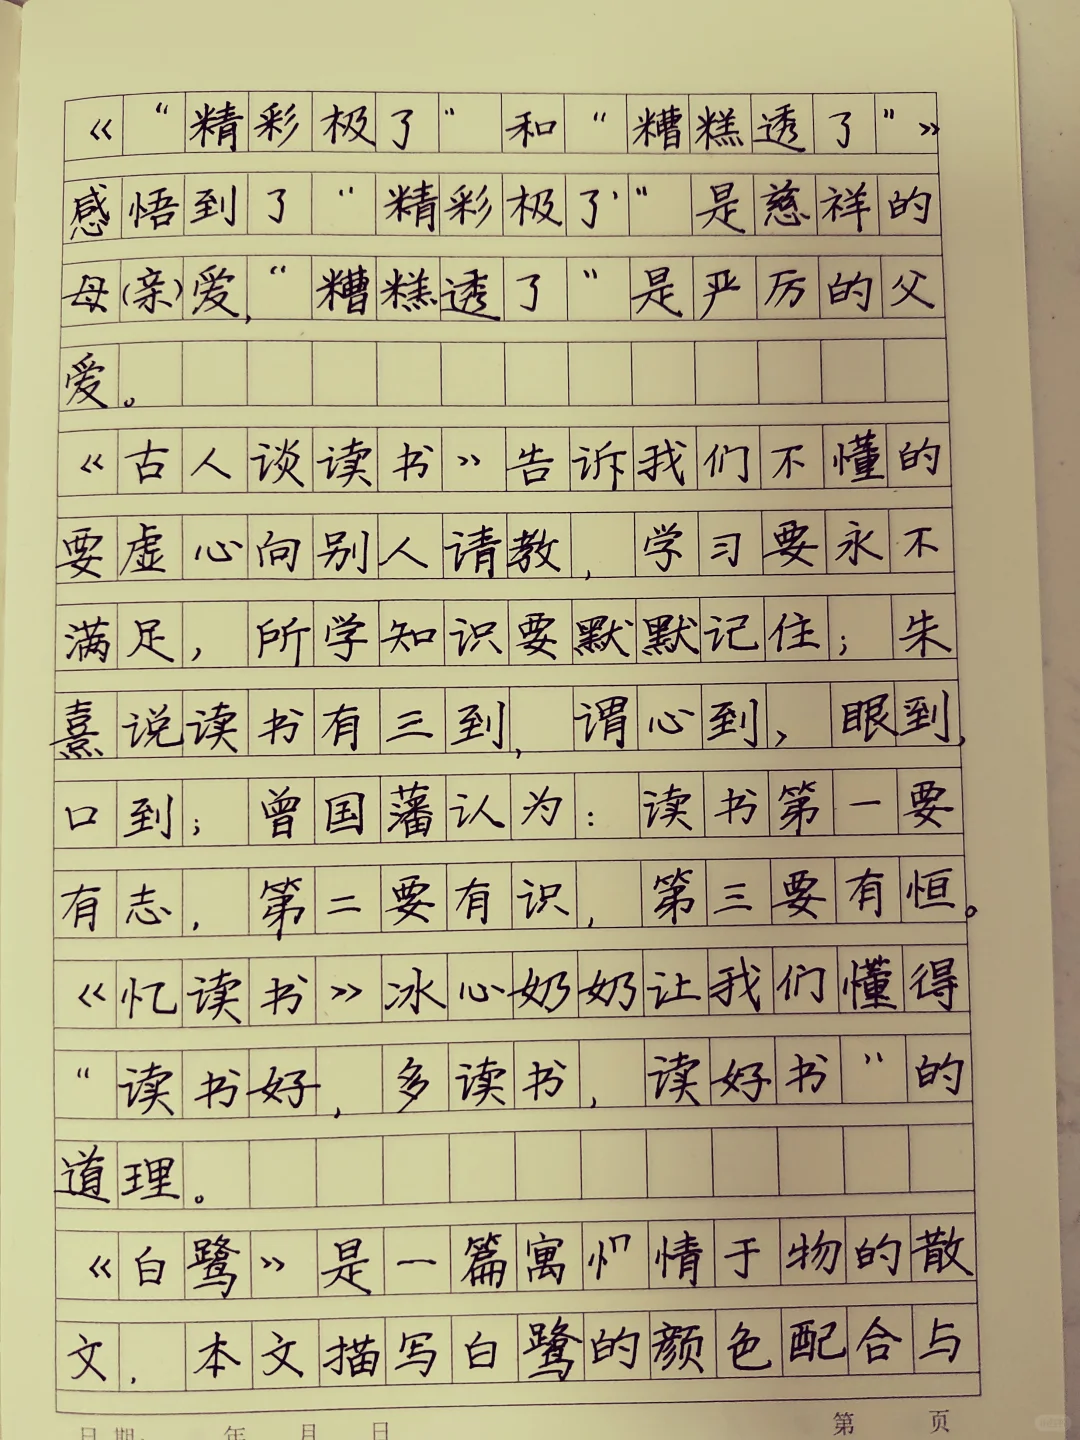 《“精彩极了”和“糟糕透了”》
感悟到了“精彩极了”是慈祥的
母(亲)爱，“糟糕透了”是严厉的父
爱。
《古人谈读书》告诉我们不懂的
要虚心向别人请教，学习要永不
满足，所学知识要默默记住；朱
熹说读书有三到，谓心到，眼到，
口到；曾国藩认为：读书第一要
有志，第二要有识，第三要有恒。
《忆读书》冰心奶奶让我们懂得
“读书好，多读书，读好书”的
道理。
《白鹭》是一篇寓情于物的散
文，本文描写白鹭的颜色配合与
日期: 年 月 日
第 页